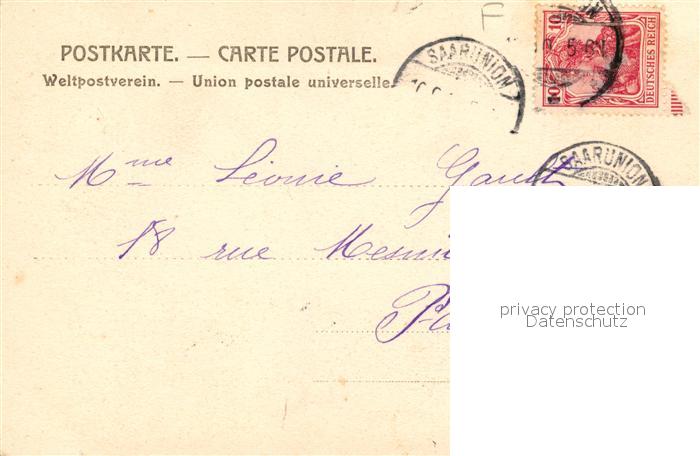 F
POSTKARTE. — CARTE POSTALE.
Weltpostverein. — Union postale universelle.
SAARUNION
10 10
DEUTSCHES REICH
SAARUNION
Mme Léonie
18 rue
privacy protection
Datenschutz